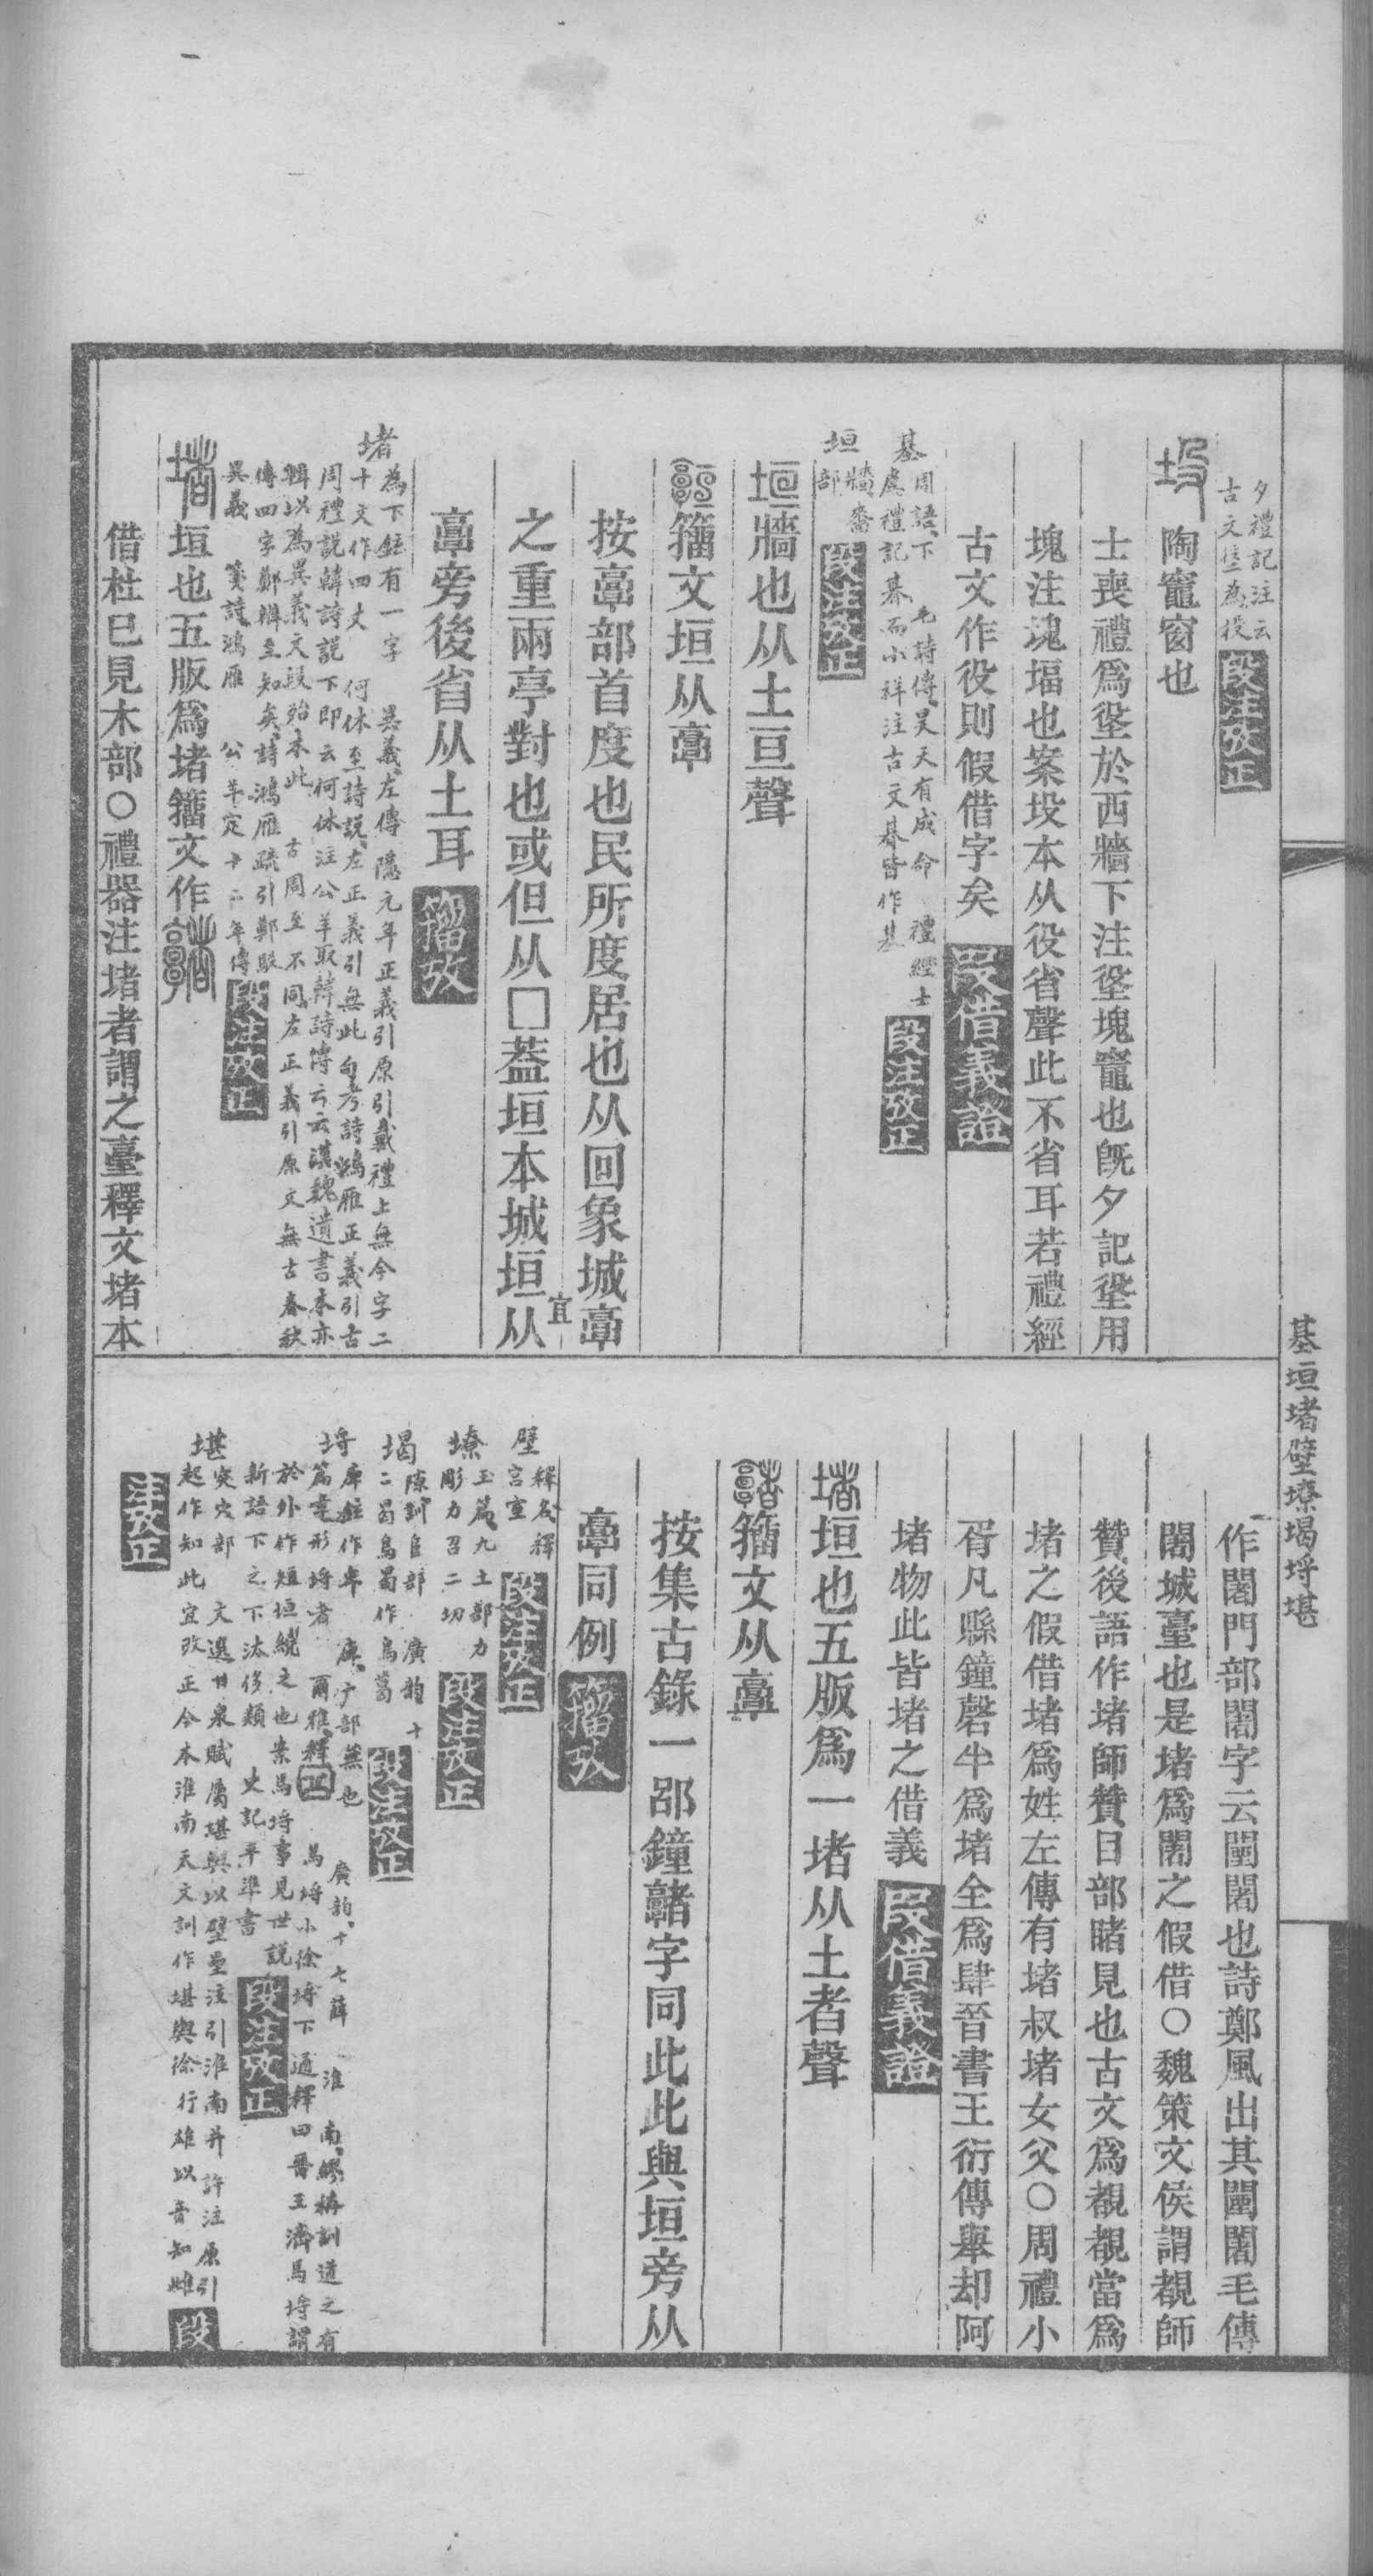 夕禮記注云
古文垼為役
段注攷正
陶竈窗也
士喪禮爲垼於西牆下注垼塊竈也旣夕記垼用
塊注塊堛也案坄本从役省聲此不省耳若禮經
古文作役則假借字矣
叚借義證
基
周語下 毛詩傳昊天有成命 禮經士
虞禮記朞而小祥注古文朞皆作基
段注攷正
垣
牆嗇
部
段注攷正
垣牆也从土亘聲
籒文垣从𩫖
按𩫖部首度也民所度居也从回象城𩫖
之重兩亭對也或但从口葢垣本城垣从
宜
𩫖旁後省从土耳
籀攷
堵
為下銍有一字 異義左傳隱元年正義引原引戴禮上無今字二
十丈作四丈 何休至詩説左正義引無此句考詩鴻雁正義引古
周禮説韓詩説下即云何休注公羊取韓詩傳云云漢魏遺書本亦
輯以為異義文段殆未此 古周至不同左正義引原文無古春秋
傳四字鄭辯至知矣詩鴻雁疏引鄭駮
異義 箋詩鴻雁 公羊定十二年傳
段注攷正
堵垣也五版爲堵籒文作
借杜已見木部○禮器注堵者謂之臺釋文堵本
基垣堵壁墽堨埒堪
作闍門部闍字云闉闍也詩鄭風出其闉闍毛傳
闍城臺也是堵爲闍之假借○魏策文侯謂覩師
贊後語作堵師贊目部睹見也古文爲覩覩當爲
堵之假借堵爲姓左傳有堵叔堵女父○周禮小
胥凡縣鐘磬半爲堵全爲肆晉書王衍傳舉却阿
堵物此皆堵之借義
叚借義證
堵垣也五版爲一堵从土者聲
籒文从𩫖
按集古錄一郘鐘䪜字同此此與垣旁从
𩫖同例
籀攷
壁
釋名釋
宮室
段注攷正
墽
玉篇九土部力
彫力召二切
段注攷正
堨
陳訓𨸏部 廣韵十
二曷烏曷作烏葛
段注攷正
埒
庳銍作卑 庳广部無也 廣韵十七薛 淮南繆稱訓道之有
篇章形埒者 爾雅釋丘 馬埒小徐埒下通釋曰晉王濟馬埒謂
於外作短垣繞之也案馬埒事見世說
新語下之下汰侈類 史記平準書
段注攷正
堪
突穴部 文選甘泉賦屬堪輿以壁壘注引淮南并許注原引
起作知此宜改正今本淮南天文訓作堪輿徐行雄以音知雌
段
注攷正